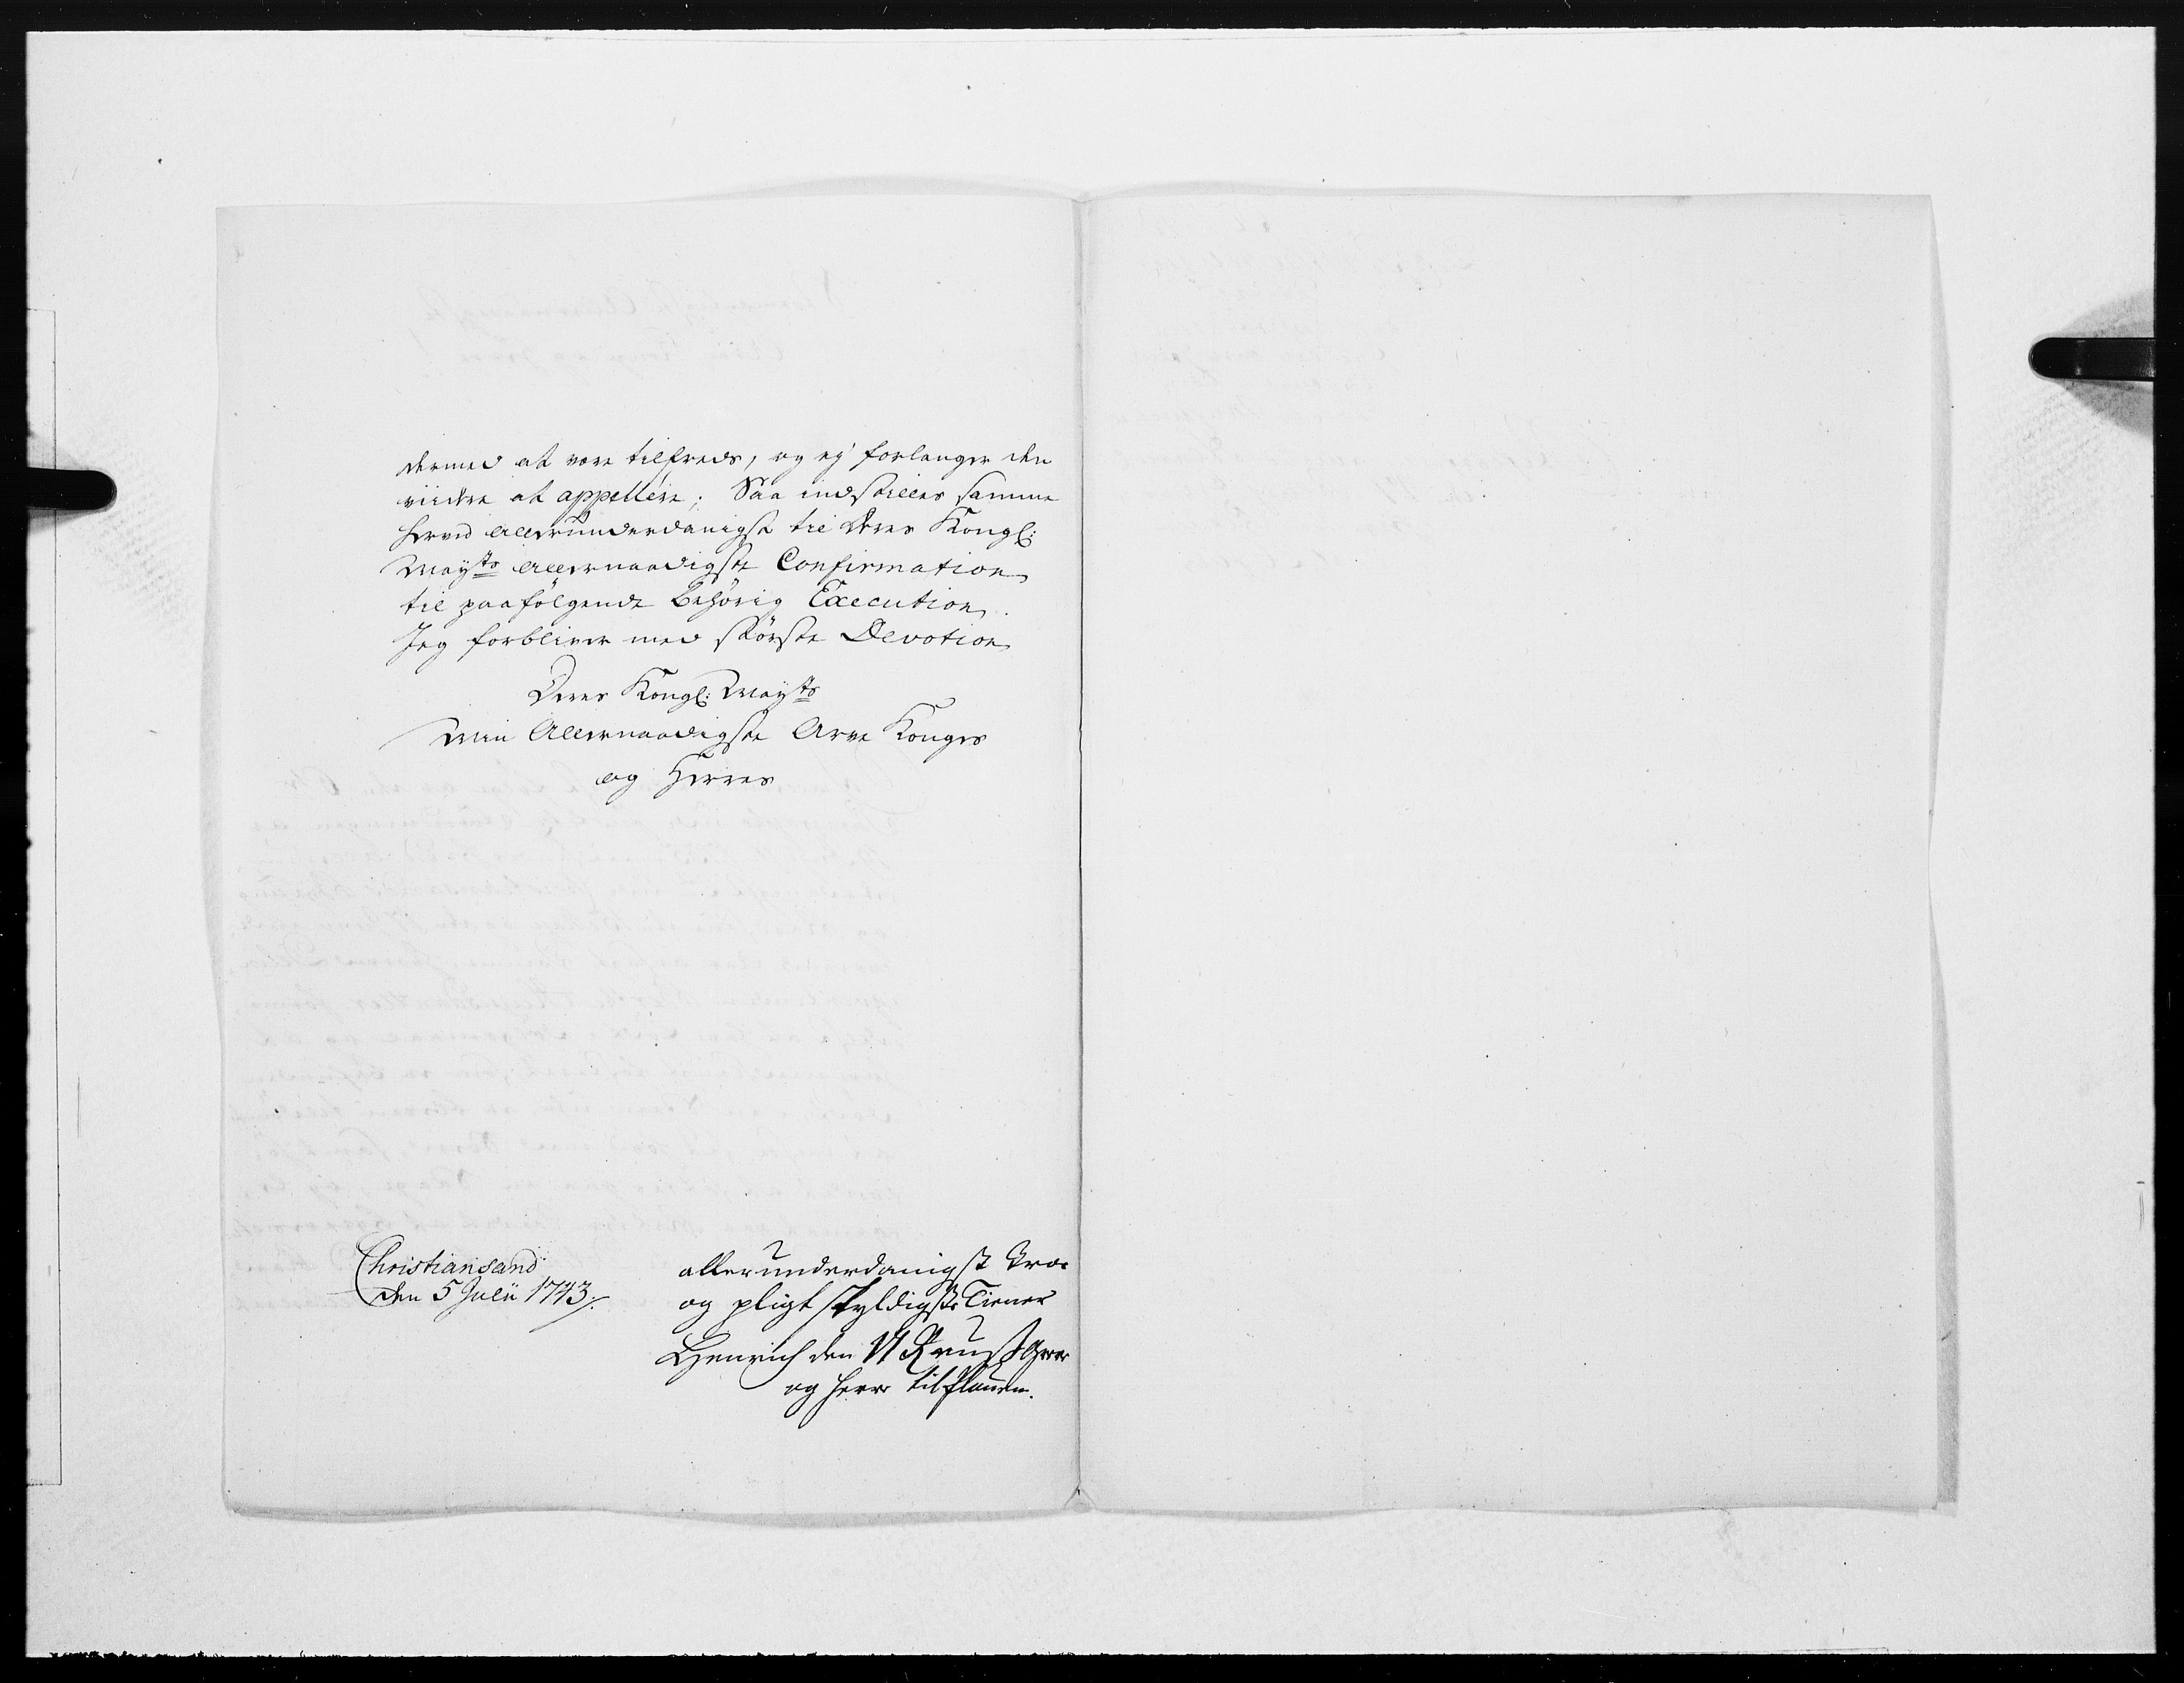 dermed at være tilfreds, og ej forlanger den
viidre at appellere; Saa indstilles samme
herved allerunderdanigst til Deres Kongl:
Mayts allernaadigste Confirmation
til paafølgende behørig Execution.
Jeg forbliver med største Devotion
Deres Kongl: Mayts
Min Allernaadigste Arve Konges
og Herres
Christiansand
den 5 Julii 1743
allerunderdanigst Troe
og pligt skyldigste Tiener
Henrich den VI Reuß Grev
og Herr til Plauen.